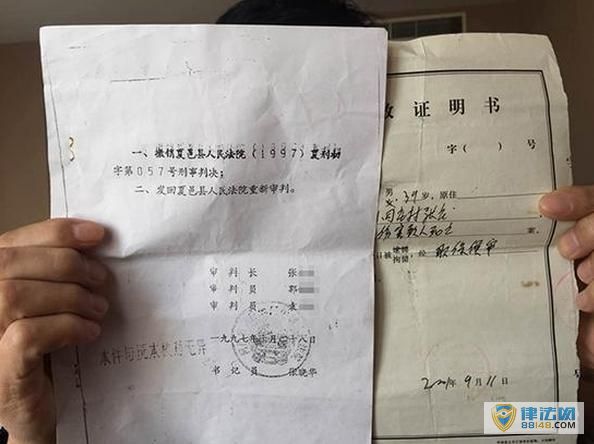 一、撤销夏邑县人民法院(1997)夏刑初
字第057号刑事判决;
二、发回夏邑县人民法院重新审判。
审 判 长 张
审 判 员 郭
审 判 员 袁
一九九七年 月二十八日
本件与原本核对无异
书 记 员 张晓华
证 明 书
字( ) 号
男
女
39岁,原住
案
逮捕
拘留
经 取保候审
2001年9月11日
律法网
88148.COM